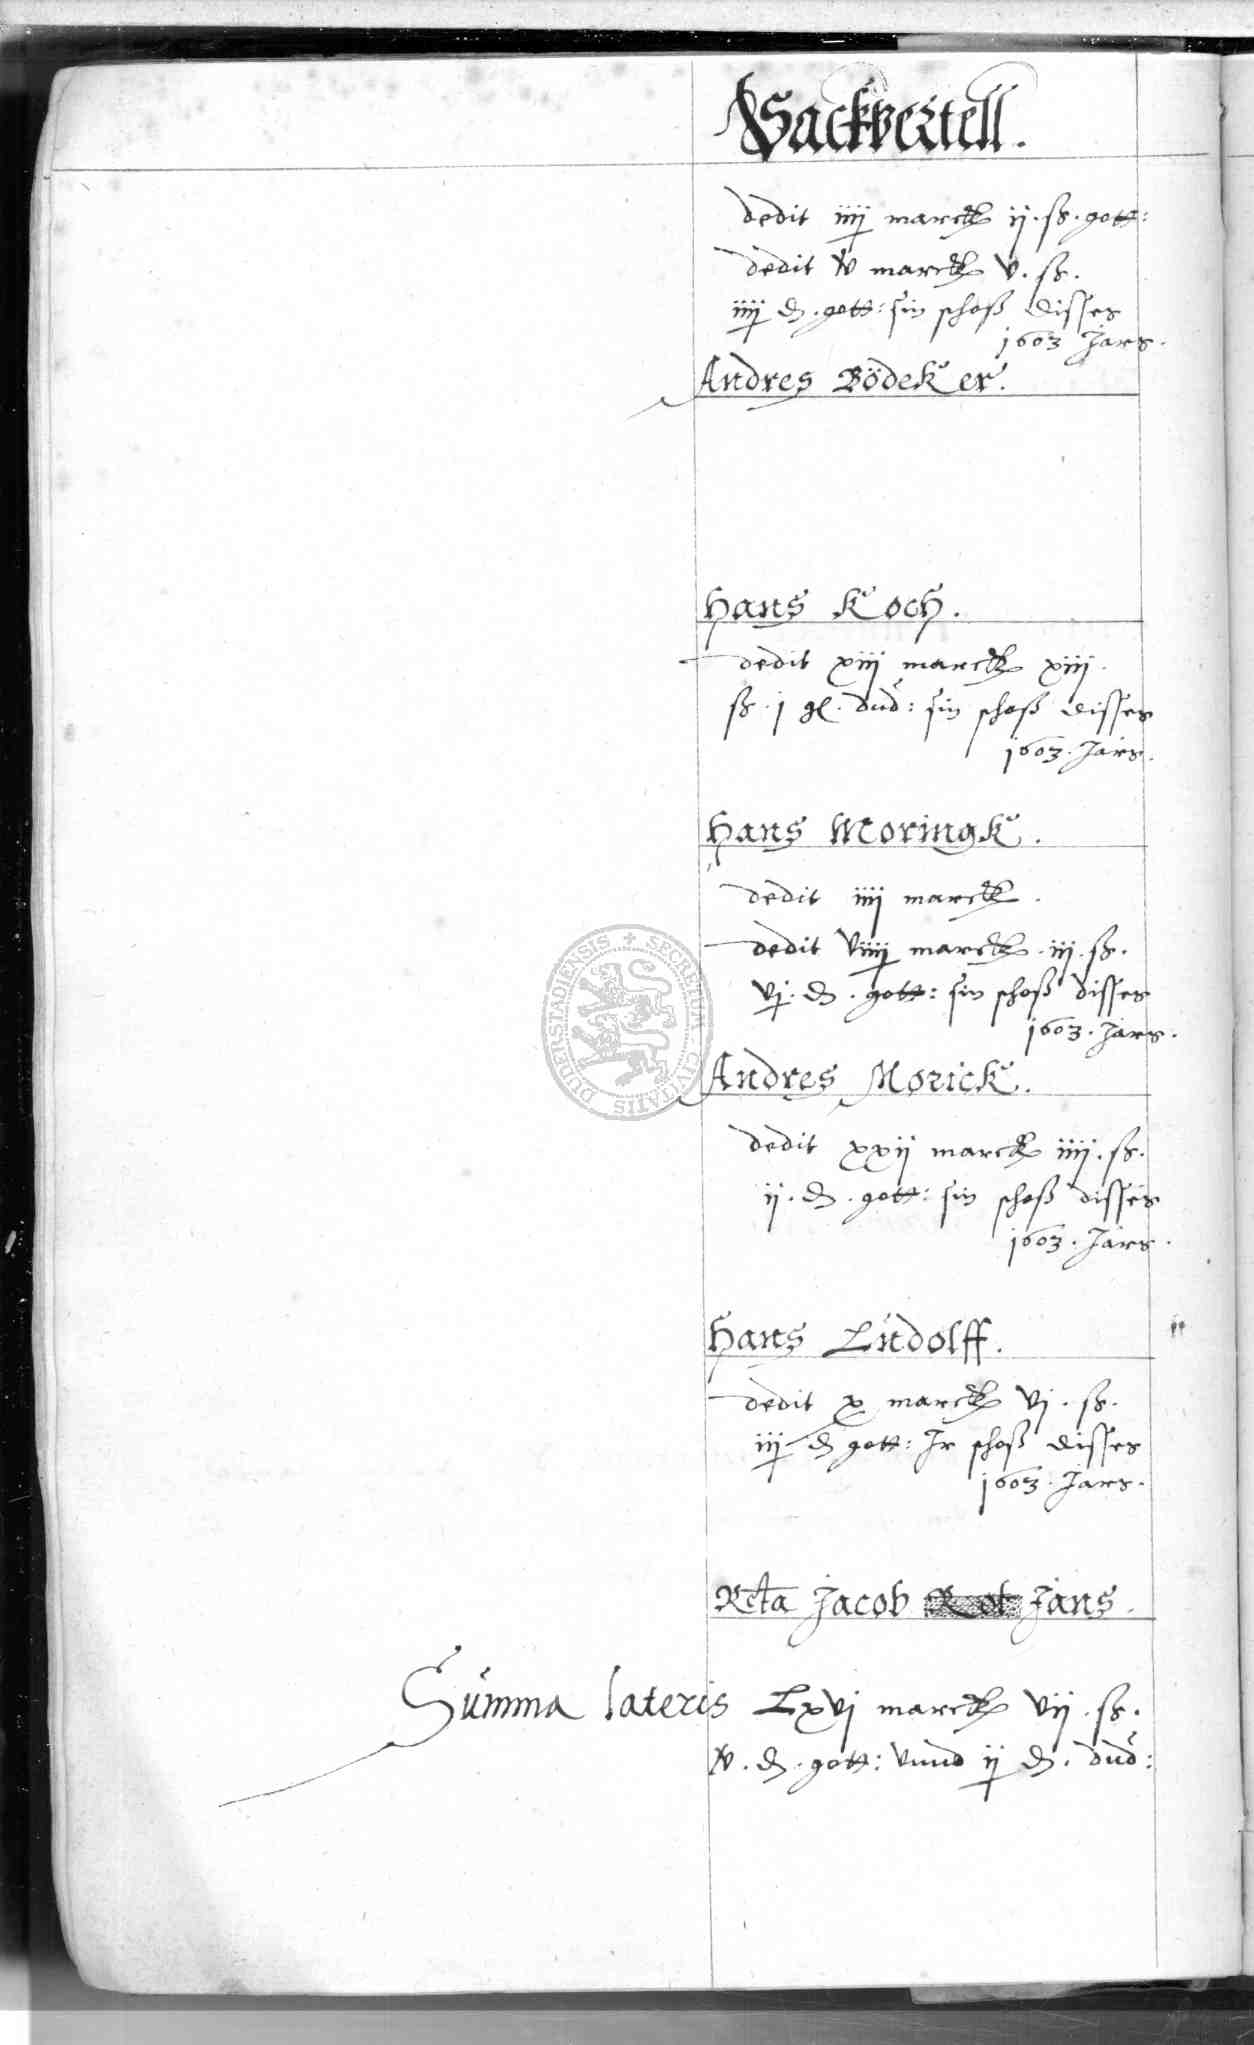 Sackvertell.
dedit iiij marck ij . ß . gott:
dedit v marck v . ß .
iiij d . gott: sin schoß disses
1603 Jars.
Andres Bödeker.
Hans Koch.
dedit xiij marck xiij .
ß . j gl . dud: sin schoß disses
1603 . Jars .
Hans Moringk .
dedit iiij marck .
dedit viiij marck . iij . ß .
vj . d . gott: sin schoß disses
1603 . Jars .
Andres Morick .
dedit xxij marck iiij . ß .
ij . d . gott: sin schoß disses
1603 . Jars .
Hans Ludolff .
dedit x marck vj . ß .
iij d gott: Jr schoß disses
1603 . Jars .
Rcta Jacob Jans .
Summa lateris Lxvj marck vij . ß .
v . d . gott: vnnd ij d . dud:
SECRETUM CIVITATIS DUDERSTADIENSIS